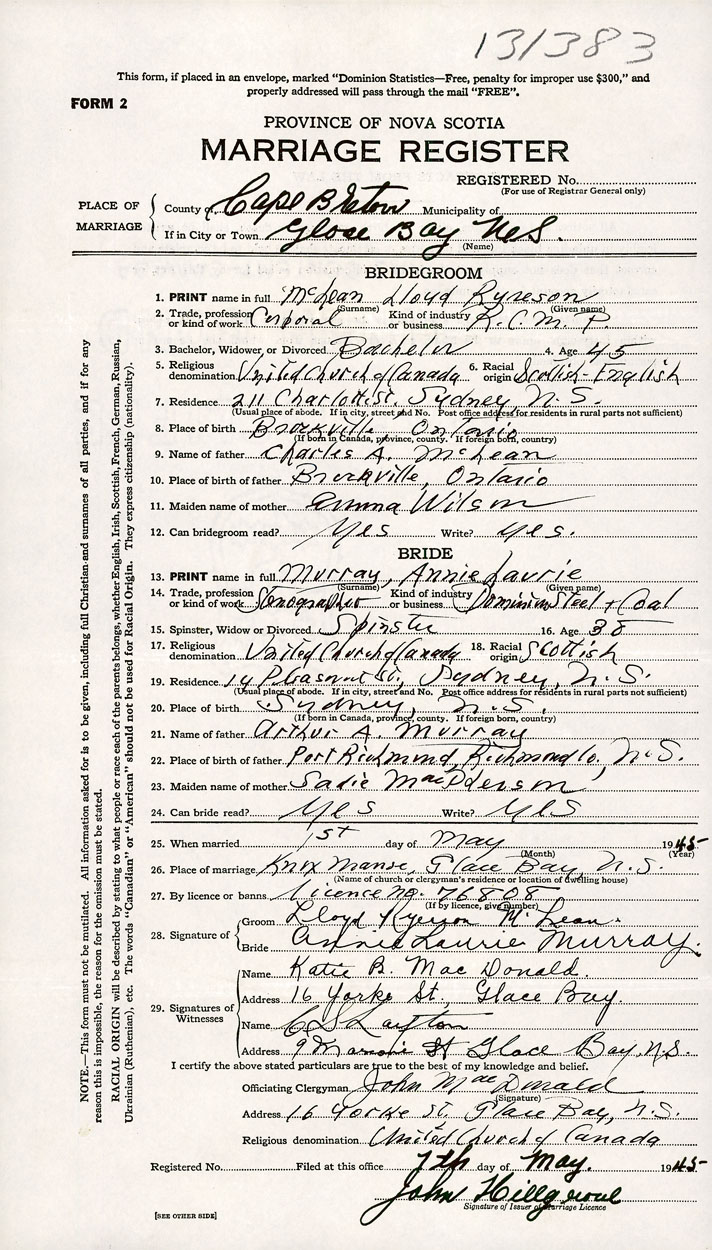 131383
This form, if placed in an envelope, marked "Dominion Statistics—Free, penalty for improper use $300," and
properly addressed will pass through the mail "FREE".
FORM 2
PROVINCE OF NOVA SCOTIA
MARRIAGE REGISTER
REGISTERED No.
(For use of Registrar General only)
PLACE OF MARRIAGE
County of Cape Breton Municipality of
If in City or Town Glace Bay N.S.
(Name)
BRIDEGROOM
1. PRINT name in full McLean Lloyd Ryreson
(Surname) (Given name)
2. Trade, profession or kind of work Corporal Kind of industry or business R.C.M.P.
3. Bachelor, Widower, or Divorced Bachelor 4. Age 45
5. Religious denomination United Church of Canada 6. Racial origin Scottish-English
7. Residence 211 Charlotte St. Sydney, N.S.
(Usual place of abode. If in city, street and No. Post office address for residents in rural parts not sufficient)
8. Place of birth Brockville Ontario
(If born in Canada, province, county. If foreign born, country)
9. Name of father Charles A. McLean
10. Place of birth of father Brockville, Ontario
11. Maiden name of mother Emma Wilson
12. Can bridegroom read? Yes Write? Yes.
BRIDE
13. PRINT name in full Murray, Annie Laurie
(Surname) (Given name)
14. Trade, profession or kind of work Stenographer Kind of industry or business Dominion Steel + Coal
15. Spinster, Widow or Divorced Spinster 16. Age 38
17. Religious denomination United Church of Canada 18. Racial origin Scottish
19. Residence 14 Pleasant St., Sydney, N.S.
(Usual place of abode. If in city, street and No. Post office address for residents in rural parts not sufficient)
20. Place of birth Sydney, N.S.
(If born in Canada, province, county. If foreign born, country)
21. Name of father Arthur A. Murray
22. Place of birth of father Port Richmond, Richmond Co., N.S.
23. Maiden name of mother Sadie MacPherson
24. Can bride read? Yes Write? Yes
25. When married 1st day of May 1945
(Month) (Year)
26. Place of marriage Knox Manse, Glace Bay, N.S.
(Name of church or clergyman's residence or location of dwelling house)
27. By licence or banns Licence no. 76808
(If by licence, give number)
28. Signature of Groom Lloyd Ryerson McLean.
Bride Annie Laurie Murray.
29. Signatures of Witnesses
Name Katie B. MacDonald.
Address 16 Yorke St., Glace Bay.
Name Layton
Address 9 St Glace Bay, N.S.
I certify the above stated particulars are true to the best of my knowledge and belief.
Officiating Clergyman John MacDonald
(Signature)
Address 16 Yorke St. Glace Bay, N.S.
Religious denomination United Church of Canada
Registered No. Filed at this office 7th day of May. 1945
John Hillgrove
Signature of Issuer of Marriage Licence
[SEE OTHER SIDE]
NOTE.—This form must not be mutilated. All information asked for is to be given, including full Christian and surnames of all parties, and if for any
reason this is impossible, the reason for the omission must be stated.
RACIAL ORIGIN will be described by stating to what people or race each of the parents belongs, whether English, Irish, Scottish, French, German, Russian,
Ukrainian (Ruthenian), etc. The words "Canadian" or "American" should not be used for Racial Origin. They express citizenship (nationality).